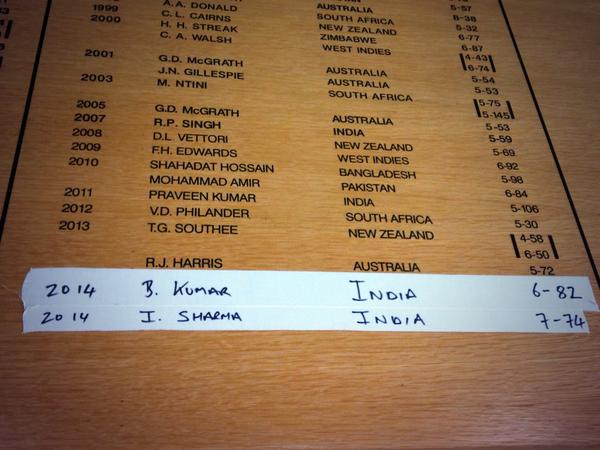 5-57
AUSTRALIA 8-38
A.A. DONALD SOUTH AFRICA 5-32
1999 C.L. CAIRNS NEW ZEALAND 6-77
2000 H.H. STREAK ZIMBABWE 6-87
C.A. WALSH WEST INDIES 4-43
6-74
2001 G.D. McGRATH AUSTRALIA 5-54
J.N. GILLESPIE AUSTRALIA 5-53
2003 M. NTINI SOUTH AFRICA 5-75
5-145
2005 G.D. McGRATH AUSTRALIA 5-53
2007 R.P. SINGH INDIA 5-59
2008 D.L. VETTORI NEW ZEALAND 5-69
2009 F.H. EDWARDS WEST INDIES 6-92
2010 SHAHADAT HOSSAIN BANGLADESH 5-98
MOHAMMAD AMIR PAKISTAN 6-84
2011 PRAVEEN KUMAR INDIA 5-106
2012 V.D. PHILANDER SOUTH AFRICA 5-30
2013 T.G. SOUTHEE NEW ZEALAND 4-58
6-50
R.J. HARRIS AUSTRALIA 5-72
2014 B. KUMAR INDIA 6-82
2014 I. SHARMA INDIA 7-74